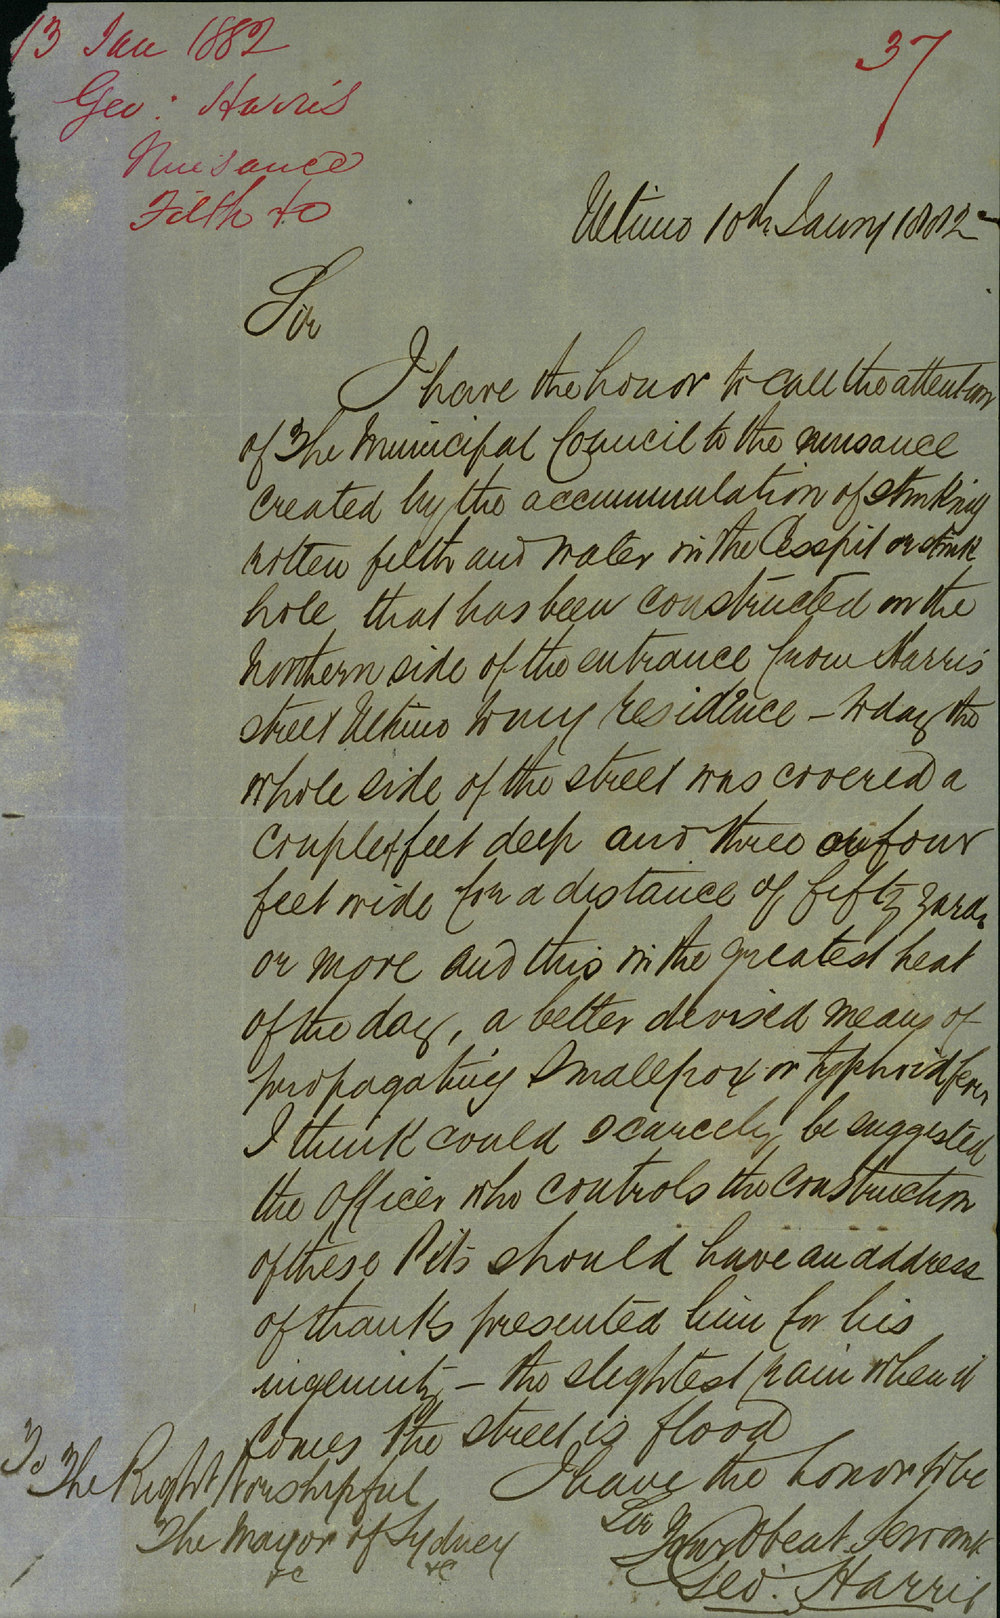 13 Jan 1882
Geo: Harris
Nuisance
Filth &c
37
Ultimo 10th. Jauny 1882
Sir
I have the honor to call the attention
of The Municipal Council to the nuisance
created by the accummulation of stinking
rotten filth and water in the Cesspit or stink
hole that has been constructed on the
Northern side of the entrance from Harris
street Ultimo to my residence – today the
whole side of the street was covered a
couple of feet deep and three or four
feet wide for a distance of fifty yards
or more and this in the greatest heat
of the day, a better devised means of
propagating Smallpox or typhoid fever
I think could scarcely be suggested
the Officer who controls the construction
of these Pits should have an address
of thanks presented him for his
ingenuity – the slightest rain when it
comes the street is flood
I have the honor to be
Sir
Your Obeat. Servant
Geo. Harris
To The Right Worshipful
The Mayor of Sydney
&c &c